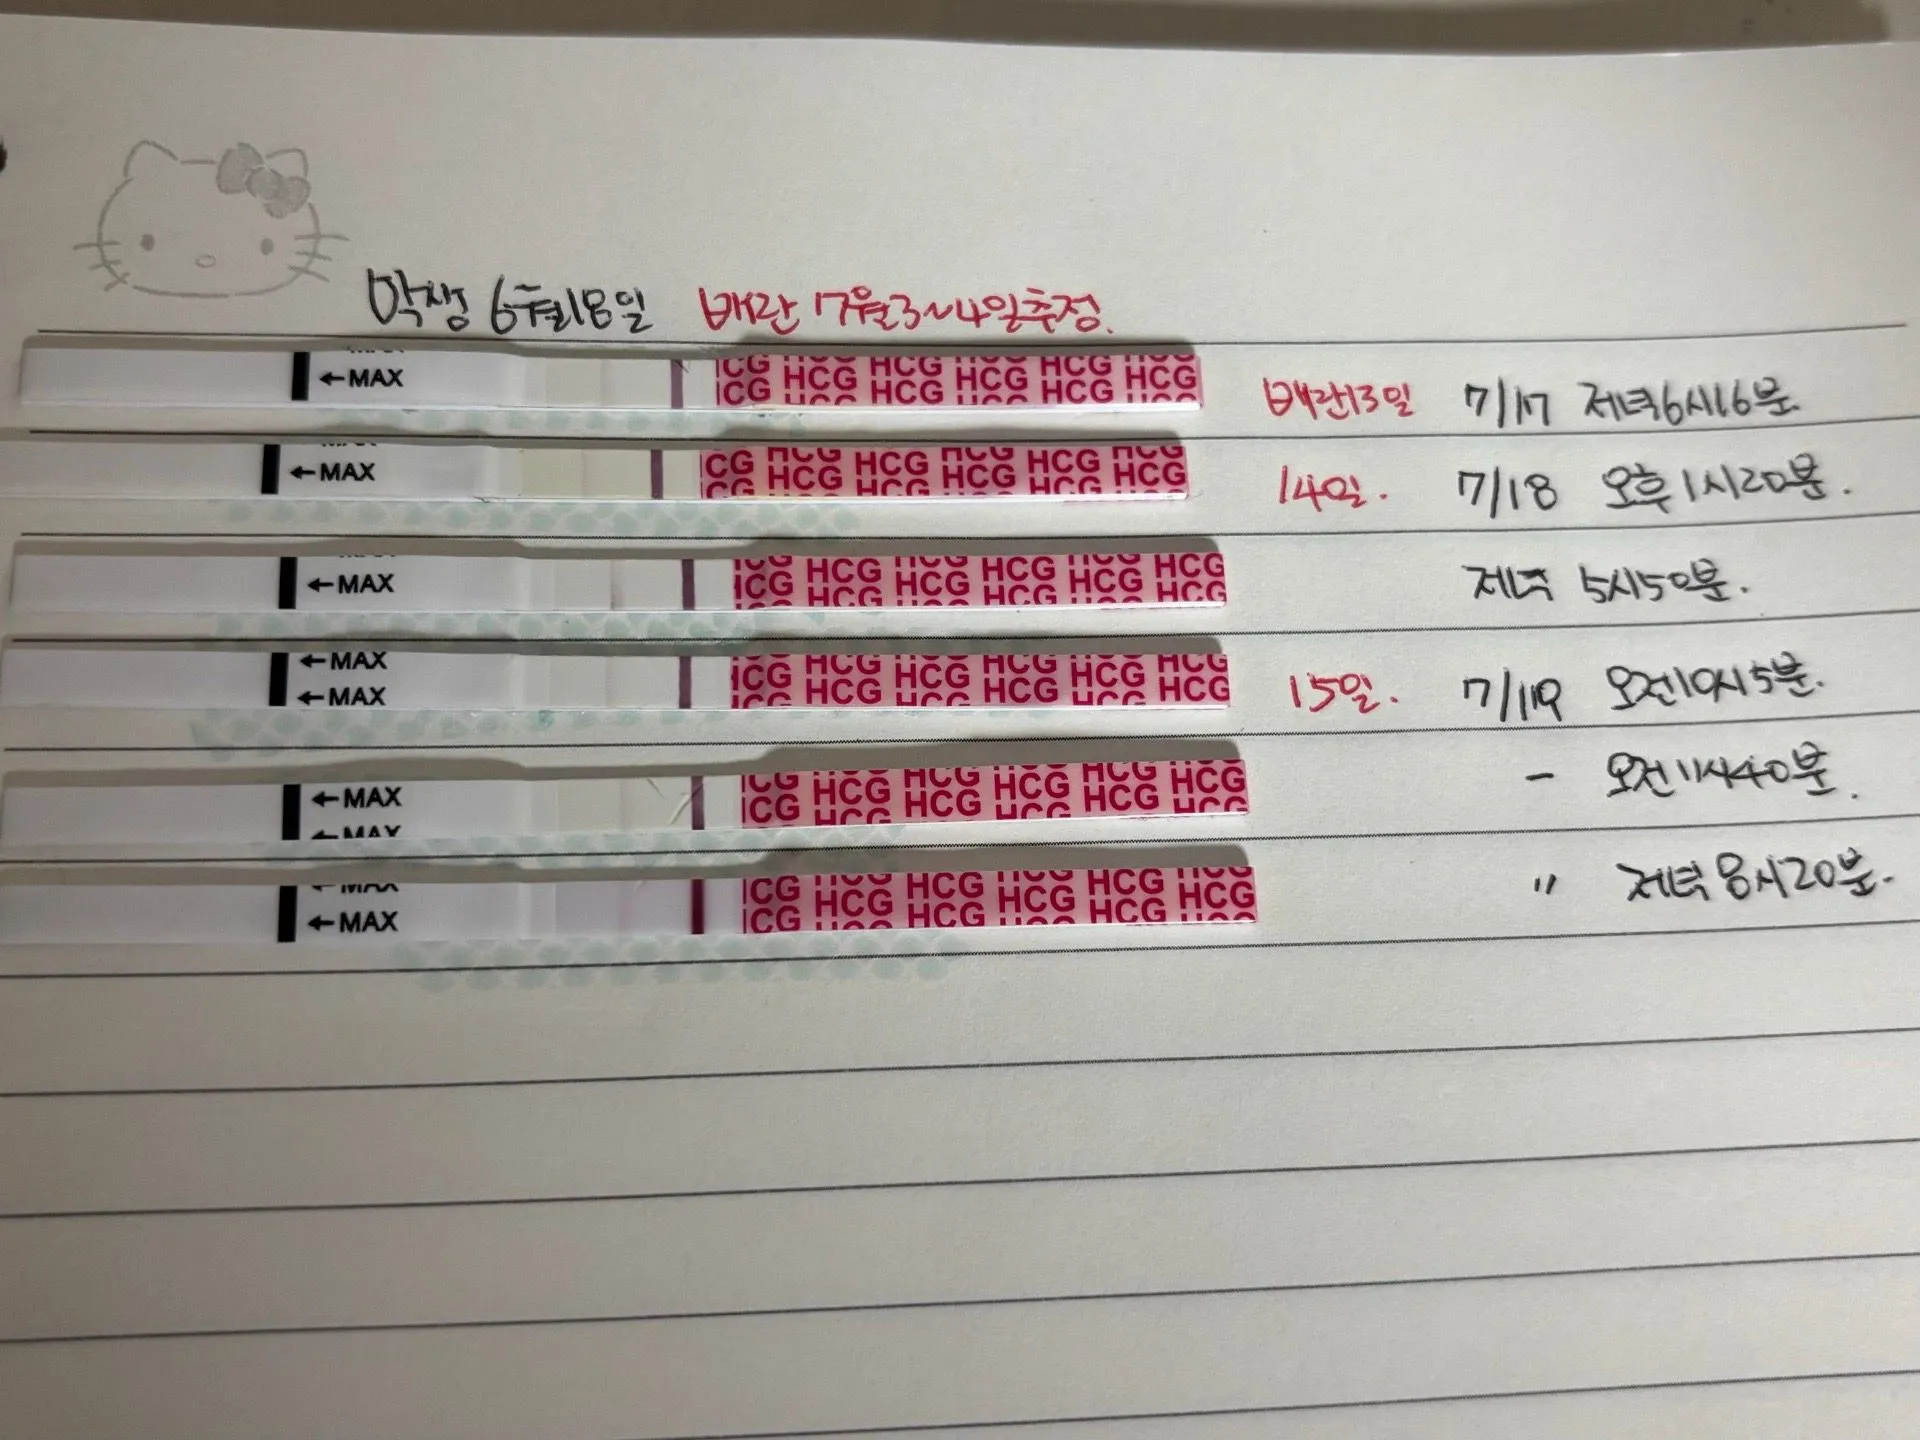 막생 6월18일 배란 7월3~4일추정.
←MAX HCG HCG HCG HCG HCG HCG 배란13일 7/17 저녁6시16분
←MAX HCG HCG HCG HCG HCG HCG 14일. 7/18 오후1시20분.
←MAX HCG HCG HCG HCG HCG HCG 저녁 5시50분.
←MAX
←MAX HCG HCG HCG HCG HCG HCG 15일. 7/19 오전10시5분.
←MAX HCG HCG HCG HCG HCG HCG - 오전11시40분.
←MAX
←MAX HCG HCG HCG HCG HCG HCG " 저녁 8시20분.